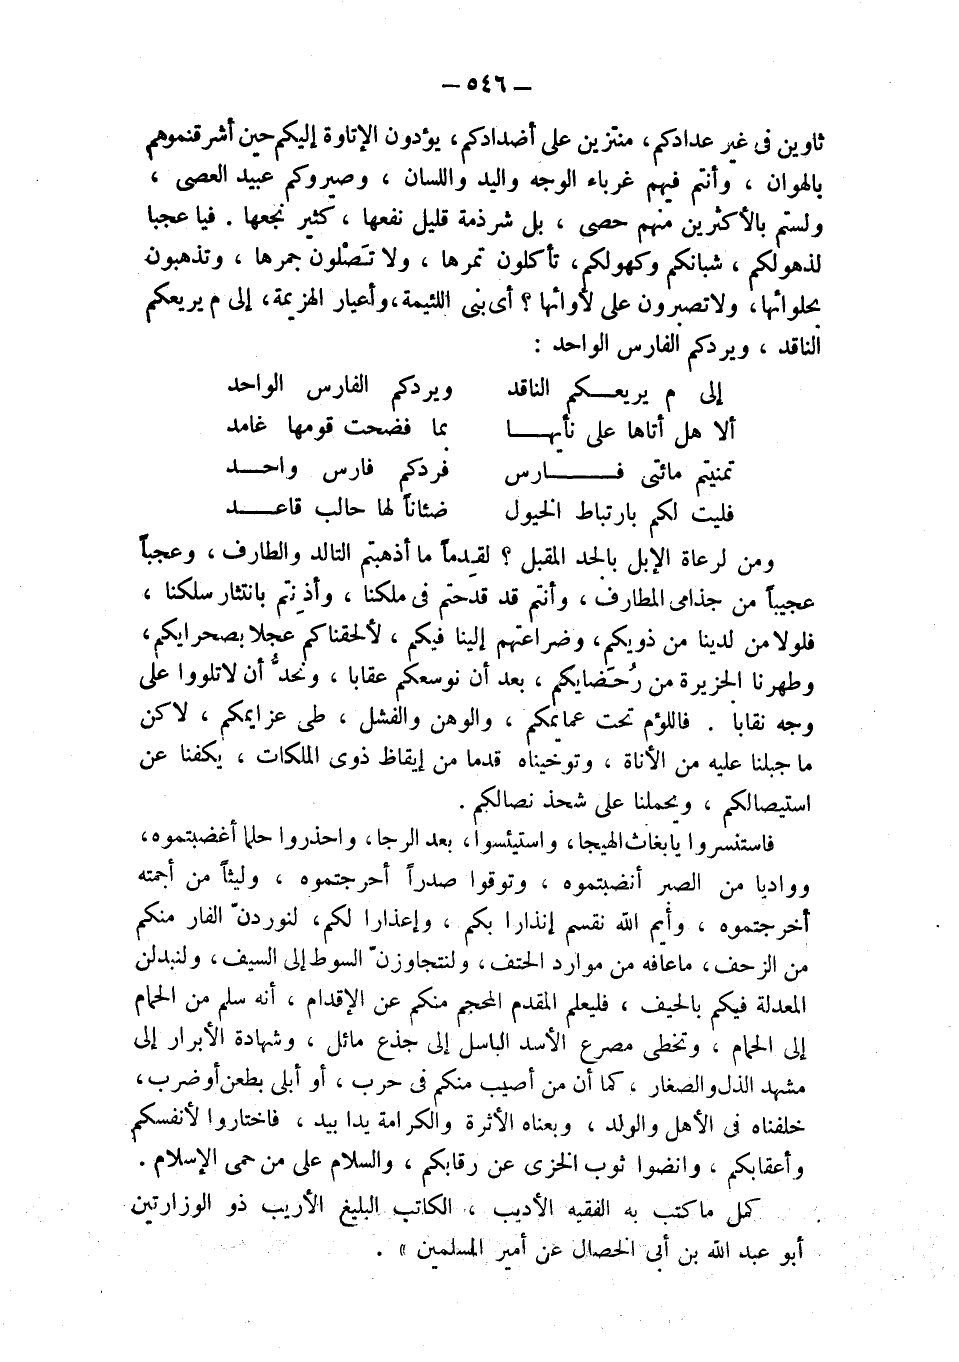 — ٥٤٦ —
ثاوين فى غير عدادكم، منتزين على أضدادكم، يؤدون الإتاوة إليكم حين أشرقنموهم
بالهوان ، وأنتم فيهم غرباء الوجه واليد واللسان ، وصيروكم عبيد العصى ،
ولستم بالأكثرين منهم حصى ، بل شرذمة قليل نفعها ، كثير نجعها . فيا عجبا
لذهولكم ، شبانكم وكهولكم، تأكلون تمرها ، ولا تَصْلون جمرها ، وتذهبون
بحلوائها، ولا تصبرون على لأوائها ؟ أى بنى اللئيمة، وأعيار الهزيمة، إلى م يريعكم
الناقد ، ويردكم الفارس الواحد :
إلى م يريعكم الناقد ويردكم الفارس الواحد
ألا هل أتاها على نأيها بما فضحت قومها غامد
تمنيتم مائتى فارس فردكم فارس واحد
فليت لكم بارتباط الخيول ضئاناً لها حالب قاعد
ومن لرعاة الإبل بالحد المقبل ؟ لقِدماً ما أذهبتم التالد والطارف ، وعجباً
عجيباً من جذامى المطارف ، وأنتم قد قدحتم فى ملكنا ، وأذِنتم بانتثار سلكنا ،
فلولا من لدينا من ذويكم، وضراعتهم إلينا فيكم ، لألحقناكم عجلا بصحرايكم،
وطهرنا الجزيرة من رُحَضايكم ، بعد أن نوسعكم عقابا ، ونحدُّ أن لا تلووا على
وجه نقابا . فاللؤم تحت عمايمكم ، والوهن والفشل ، طى عزايمكم ، لاكن
ما جبلنا عليه من الأناة ، وتوخيناه قدما من إيقاظ ذوى الملكات ، يكفنا عن
استيصالكم ، ويحملنا على شحذ نصالكم .
فاستنسروا يا بغاث الهيجا، واستيئسوا، بعد الرجا، واحذروا حلما أغضبتموه،
وواديا من الصبر أنضبتموه ، وتوقوا صدراً أحرجتموه ، وليثاً من أجمته
أخرجتموه ، وأيم الله نقسم إنذارا بكم ، وإعذارا لكم، لنوردنّ الفار منكم
من الزحف، ماعافه من موارد الحتف، ولنتجاوزنّ السوط إلى السيف، ولنبدلن
المعدلة فيكم بالحيف ، فليعلم المقدم المحجم منكم عن الإقدام ، أنه سلم من الحمام
إلى الحمام ، وتخطى مصرع الأسد الباسل إلى جذع مائل ، وشهادة الأبرار إلى
مشهد الذل والصغار ، كما أن من أصيب منكم فى حرب ، أو أبلى بطعن أوضرب،
خلفناه فى الأهل والولد ، وبعناه الأثرة والكرامة يدا بيد ، فاختاروا لأنفسكم
وأعقابكم ، وانضوا ثوب الخزى عن رقابكم ، والسلام على من حمى الإسلام .
كمل ماكتب به الفقيه الأديب ، الكاتب البليغ الأريب ذو الوزارتين
أبو عبد الله بن أبى الخصال عن أمير المسلمين » .